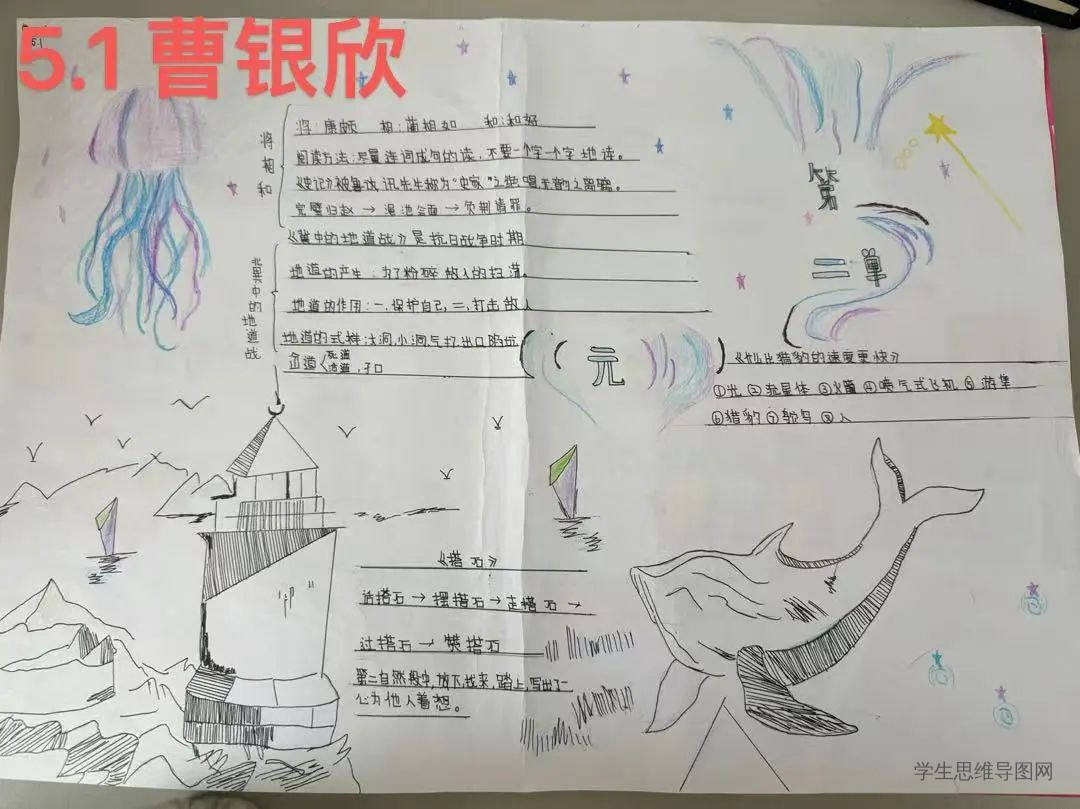 5.1 曹银欣
5.1
将相和
将:廉颇 相:蔺相如 和:和好
阅读方法:尽量连词成句的读,不要一个字一个字地读。
《史记》被鲁迅先生称为"史家之绝唱无韵之离骚。
完璧归赵 → 渑池会面 → 负荆请罪。
冀中的地道战
《冀中的地道战》是抗日战争时期
地道的产生:为了粉碎敌人的扫荡。
地道的作用:一,保护自己,二,打击敌人
地道的式样:大洞,小洞,气孔,出口,陷坑
死道
活道,子口
第三单
元
《什么比猎豹的速度更快》
①光 ②流星体 ③火箭 ④喷气式飞机 ⑤游隼
⑥猎豹 ⑦鸵鸟 ⑧人
《搭石》
话搭石 → 摆搭石 → 走搭石 →
过搭石 → 赞搭石
第二自然段中,放下找来,踏上,写出了
公为他人着想。
学生思维导图网